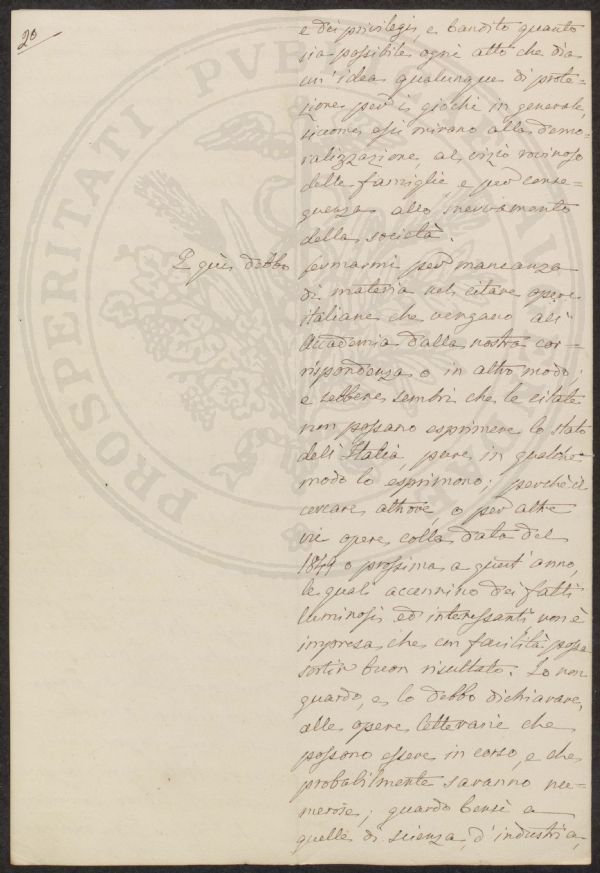 20
e dei privilegi, e bandito quanto
sia possibile ogni atto che dia
un' idea qualunque di prote-
zione per i giochi in generale,
siccome essi mirano alla demo-
ralizzazione, al vizio rovinoso
delle famiglie e per conse-
guenza allo snervamento
della società.
E quì debbo fermarmi per mancanza
di materia nel citare opere
italiane che vengano all'
Accademia dalla nostra cor-
rispondenza o in altro modo;
e sebbene sembri che le citate
non possano esprimere lo stato
dell' Italia, pure in qualche
modo lo esprimono; perchè il
cercare altrove, o per altre
vie opere colla data del
1849 o prossima a quest' anno,
le quali accennino dei fatti
luminosi ed interessanti non è
impresa che con facilità possa
sortir buon risultato. Io non
guardo, e lo debbo dichiarare,
alle opere letterarie che
possono essere in corso, e che
probabilmente saranno nu-
merose; guardo bensì a
quelle di scienza, d'industria,
PROSPERITATI PUBLICAE